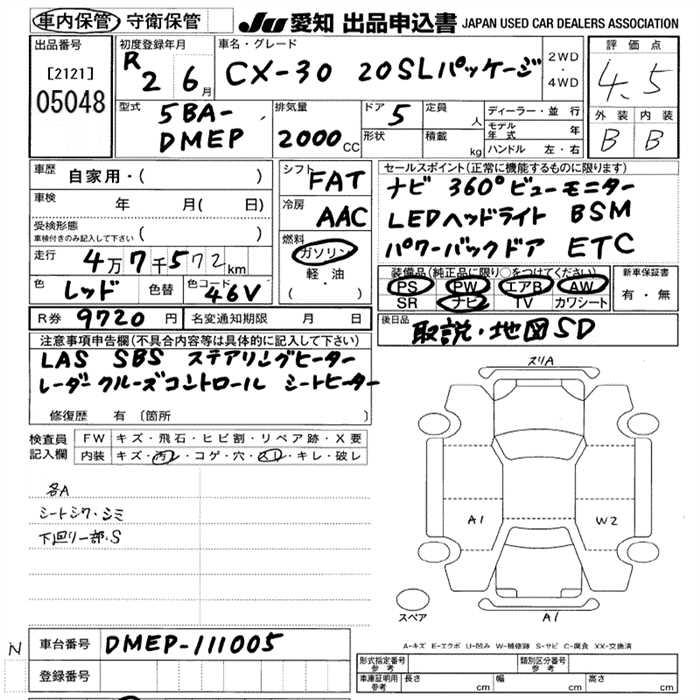 車内保管 守衛保管 JU 愛知 出品申込書 JAPAN USED CAR DEALERS ASSOCIATION
出品番号 初度登録年月 車名・グレード 評価点
[2121] R 2 6月 CX-30 20SLパッケージ 2WD・4WD 4.5
05048 型式 5BA-DMEP 排気量 2000CC ドア 5 形状 定員 人 積載 kg ディーラー・並行 モデル年式 年 ハンドル 左・右 外装 B 内装 B
車歴 自家用・( ) シフト FAT セールスポイント(正常に機能するものに限ります)
車検 年 月( 日) 冷房 AAC ナビ 360°ビューモニター
受検形態 車検付きのみ記入して下さい 燃料 LEDヘッドライト BSM
走行 4万7千572km ガソリン・軽油・( ) パワーバックドア ETC
色 レッド 色替 色コード 46V 装備品(純正品に限り○をつけてください) 新車保証書
PS PW エアB AW 有・無
SR ナビ TV カワシート
R券 9720円 名変通知期限 月 日 後日品 取説・地図SD
注意事項申告欄(不具合内容等は具体的に記入して下さい)
LAS SBS ステアリングヒーター
レーダークルーズコントロール シートヒーター
修復歴 有 〔箇所
検査員記入欄 FW キズ・飛石・ヒビ割・リペア跡・X要
内装 キズ・汚レ・コゲ・穴・スレ・キレ・破レ
各A
シートシワ・シミ
下回リ一部.S
ズリA
A1 W2
スペア A1
A-キズ E-エクボ U-凹み W-補修跡 S-サビ C-腐食 XX-交換済
N 車台番号 DMEP-111005
登録番号
形式指定番号 参考 類別区分番号 参考
車庫証明用 参考 長さ cm 幅 cm 高さ cm